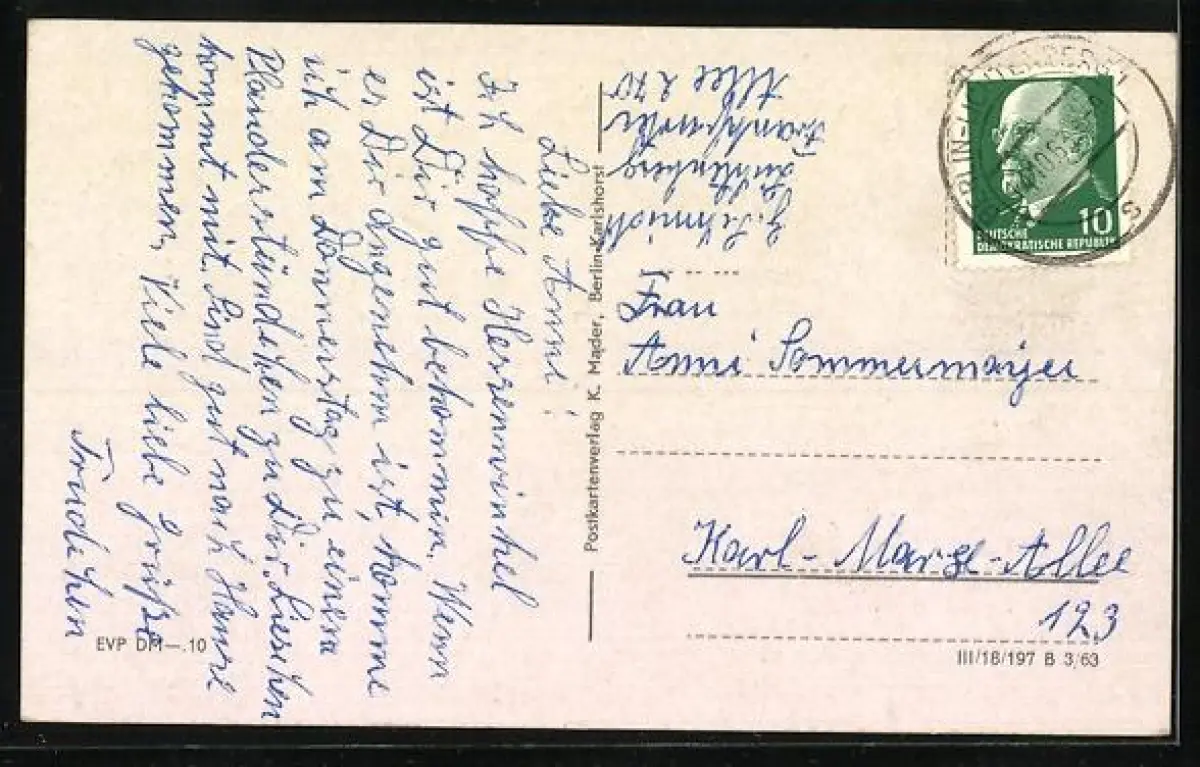 Liebe Anni!
Ich hoffe Herzenwinkel
ist Dir gut bekommen. Wenn
er Dir angenehm ist, komme
ich am Donnerstag zu einem
Plauderstündchen zu Dir. Lieschen
kommt mit. Sind gut nach Hause
gekommen, Viele liebe Grüße
Trudchen
EVP DM—.10
Postkartenverlag K. Mader, Berlin-Karlshorst
Schmidt
Lichtenberg
Frankfurter
Allee 270
Frau
Anni Sommermayer
Karl-Marx-Allee
123
III/18/197 B 3/63
BERLIN-LICHTENBERG
10
DEUTSCHE
DEMOKRATISCHE REPUBLIK